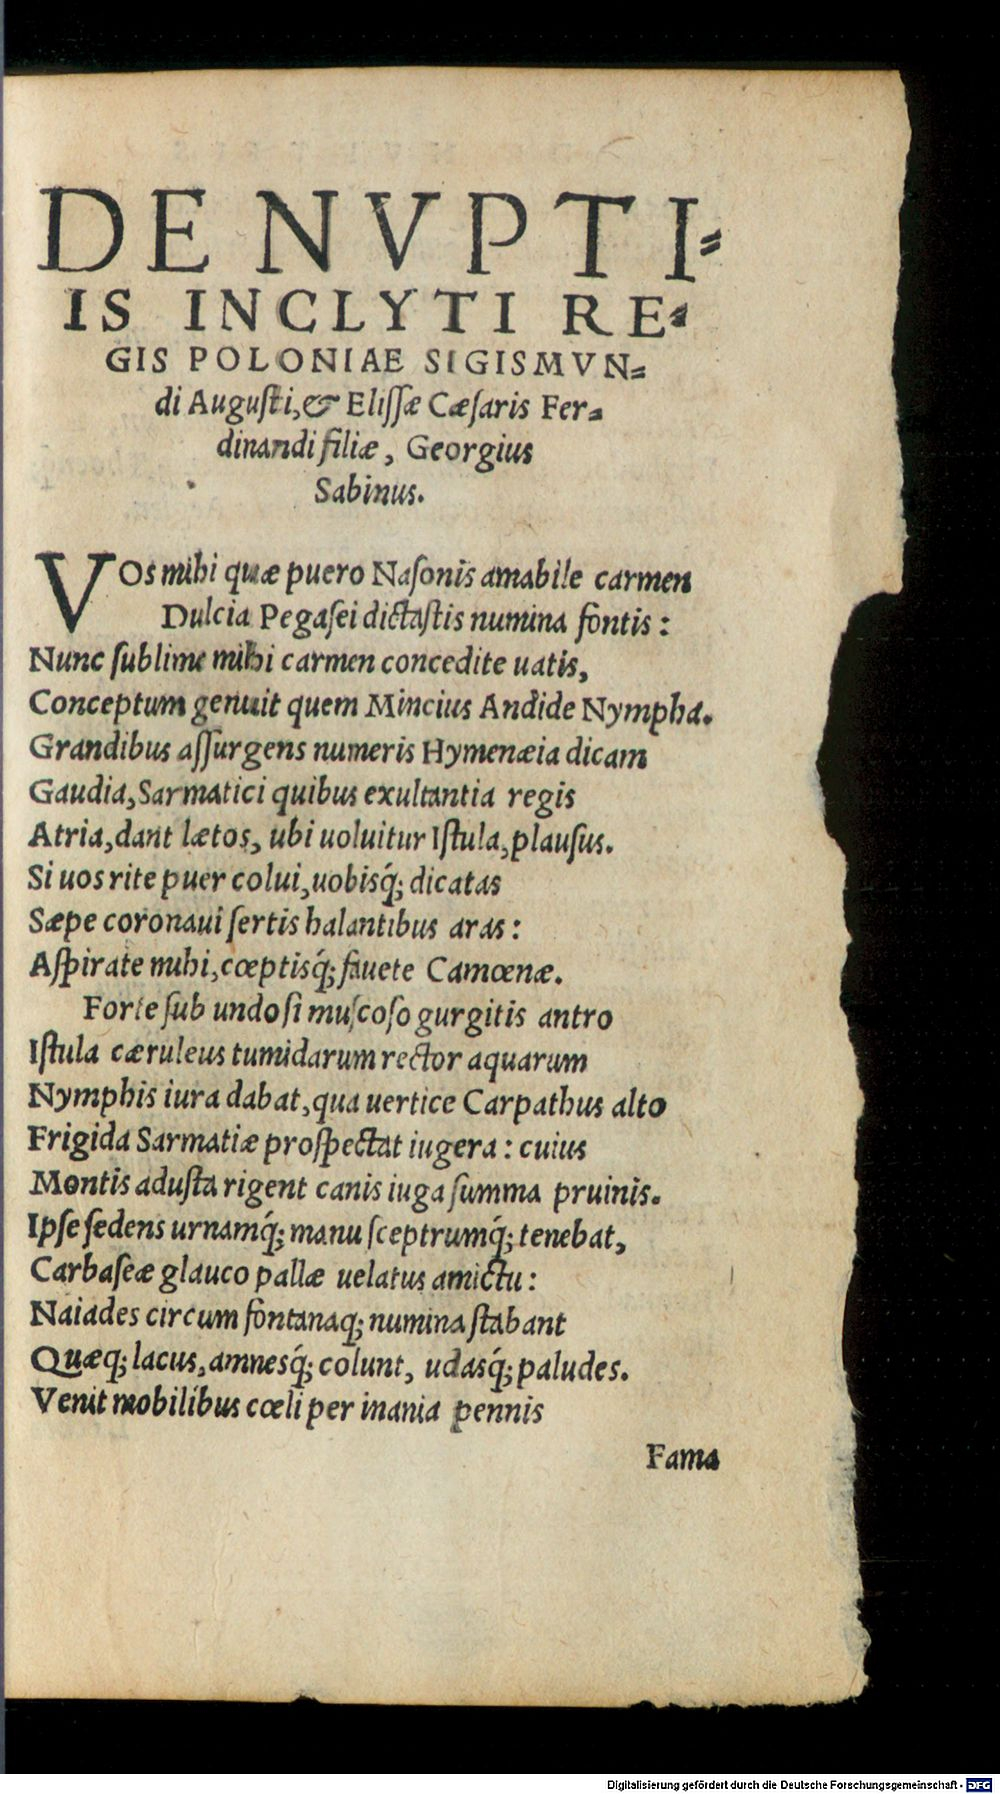 DE NVPTI⸗
IS INCLYTI RE⸗
GIS POLONIAE SIGISMVN⸗
di Auguſti, & Eliſſæ Cæſaris Fer⸗
dinandi filiæ, Georgius
Sabinus.
VOs mihi quæ puero Naſonis amabile carmen
Dulcia Pegaſei dictaſtis numina fontis:
Nunc ſublime mihi carmen concedite uatis,
Conceptum genuit quem Mincius Andide Nympha.
Grandibus aſſurgens numeris Hymenæia dicam
Gaudia, Sarmatici quibus exultantia regis
Atria, dant lætos, ubi uoluitur Iſtula, plauſus.
Si uos rite puer colui, uobisq́; dicatas
Sæpe coronaui ſertis halantibus aras:
Aſpirate mihi, cœptisq́; fauete Camœnæ.
Forte ſub undoſi muſcoſo gurgitis antro
Iſtula cæruleus tumidarum rector aquarum
Nymphis iura dabat, qua uertice Carpathus alto
Frigida Sarmatiæ proſpectat iugera: cuius
Montis aduſta rigent canis iuga ſumma pruinis.
Ipſe ſedens urnamq́; manu ſceptrumq́; tenebat,
Carbaſeæ glauco pallæ uelatus amictu:
Naiades circum fontanaq; numina ſtabant
Quæq; lacus, amnesq́; colunt, udasq́; paludes.
Venit mobilibus cœli per inania pennis
Fama
Digitalisierung gefördert durch die Deutsche Forschungsgemeinschaft - DFG